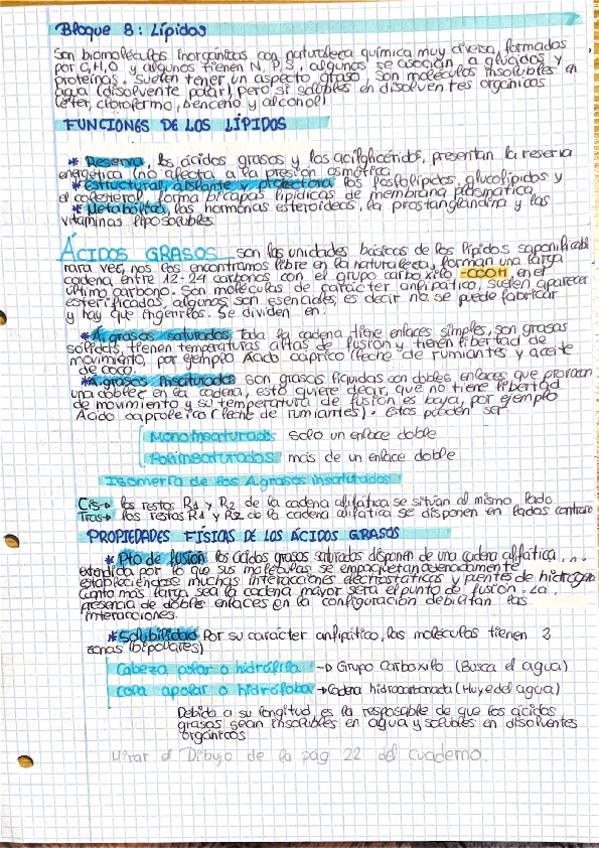 Bloque 8: Lípidos
Son biomoléculas inorgánicas con naturaleza química muy diversa, formados
por C,H,O y algunos tienen N, P, S, algunos se asocian a glúcidos y
proteínas. Suelen tener un aspecto graso, son moléculas insolubles en
agua (disolvente polar) pero sí solubles en disolventes orgánicos
(éter, cloroformo, benceno y alcohol)
FUNCIONES DE LOS LÍPIDOS
* Reserva, los ácidos grasos y los acilglicéridos, presentan la reserva
energética (no afecta a la presión osmótica)
* Estructural, aislante y protectora los fosfolípidos, glucolípidos y
el colesterol forma bicapas lipídicas de membrana plasmática
* Metabólica, las hormonas esteroideas, la prostanglandina y las
vitaminas liposolubles
ÁCIDOS GRASOS son las unidades básicas de los lípidos saponificabl
rara vez nos los encontramos libre en la naturaleza, forman una larga
cadena entre 12-24 carbonos con el grupo carboxilo -COOH en el
último carbono. Son moléculas de carácter anfipático, suelen aparecer
esterificadas, algunos son esenciales, es decir no se puede fabricar
y hay que ingerirlos. Se dividen en:
* A. grasos saturados Toda la cadena tiene enlaces simples, son grasas
sólidas, tienen temperaturas altas de fusión y tienen libertad de
movimiento, por ejemplo Ácido cáprico (leche de rumiantes y aceite
de coco.
* A. grasos Insaturados son grasas líquidas con dobles enlaces que provocan
una doblez en la cadena, esto quiere decir, que no tiene libertad
de movimiento y su temperatura de fusión es baja, por ejemplo
Ácido caproleico (leche de rumiantes). Estos pueden ser
Monoinsaturados solo un enlace doble
Poliinsaturados más de un enlace doble
Isomería de los A.grasos insaturados
Cis→ los restos R1 y R2 de la cadena alifática se sitúan al mismo lado
Trans→ los restos R1 y R2 de la cadena alifática se disponen en lados contrario
PROPIEDADES FÍSIAS DE LOS ÁCIDOS GRASOS
* Pto de fusión los ácidos grasos saturados disponen de una cadena alifática
extendida por lo que sus moléculas se empaquetan ordenadamente
estableciéndose muchas interacciones electrostáticas y puentes de hidrógeno
Canto más larga sea la cadena mayor será el punto de fusión. La
presencia de dobles enlaces en la configuración debilitan las
interacciones.
* Solubilidad Por su carácter anfipático, las moléculas tienen 2
zonas (bipolares)
Cabeza polar o hidrófila → Grupo Carboxilo (Busca el agua)
cola apolar o hidrófoba → Cadena hidrocarbonada (Huye del agua)
Debido a su longitud es la resposable de que los ácidos
grasos sean insolubles en agua y solubles en disolventes
orgánicos
Mirar el Dibujo de la pág 22 del cuaderno.